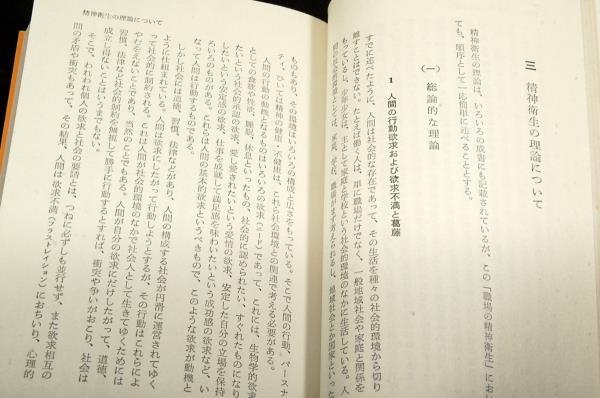 三 精神衛生の理論について
精神衛生の理論は、いろいろの成書にも記載されているが、この『職場の精神衛生』におい
ても、順序として一応簡単に述べることとする。
(一) 総論的な理論
1 人間の行動欲求および欲求不満と葛藤
すでに述べたように、人間は社会的な存在であって、その生活を種々の社会的環境から切り
離すことはできない。たとえば働く人は、単に職場だけでなく、一般地域社会や家庭と関係を
もっているし、少年少女は、主として家庭と学校という社会的環境のなかに生活している。人
間の社会的環境としては、家庭、学校、職場がまず考えられるし、地域社会とか国家といった
精神衛生の理論について
ものもあり、その環境はいろいろの構成と広さをもっている。そこで人間の行動、パースナ
リティ、ひいては精神の健康・不健康は、これら社会環境との関連で考える必要がある。
人間の行動の動機となるものはいろいろの欲求(ニード)であって、これには、生物学的欲求
としての食欲や性欲、睡眠、休息といったもの、社会的に認められたい、すぐれたものになり
たいという社会的承認の欲求、愛し愛されたいという愛情の欲求、安定した自分の立場を保持
したいという安定感の欲求、仕事を成就して満足感を味わいたいという成功感の欲求など、い
ろいろのものがある。これらは人間の基本的欲求というべきもので、このような欲求が動機と
なって人間は行動するものである。
しかし社会には道徳、習慣、法律などがあり、人間の構成する社会が円滑に運営されてゆく
ように仕組まれている。人間は欲求にしたがって行動しようとするが、その行動はこれらによ
って社会的に制約される。これは人間が社会的環境のなかで社会人として生きてゆくためには
やむをえないことであり、当然のことでもある。人間が自分の欲求にだけしたがって、道徳、
習慣、法律など社会的制約を無視して勝手に行動するとすれば、衝突や争いがおこり、社会は
成立し得ないことはいうまでもない。
そこで、われわれ個人の欲求と社会の要請とは、つねに必ずしも並行せず、また欲求相互の
間の矛盾や衝突もあって、その結果、人間は欲求不満(フラストレイション)におちいり、心理的